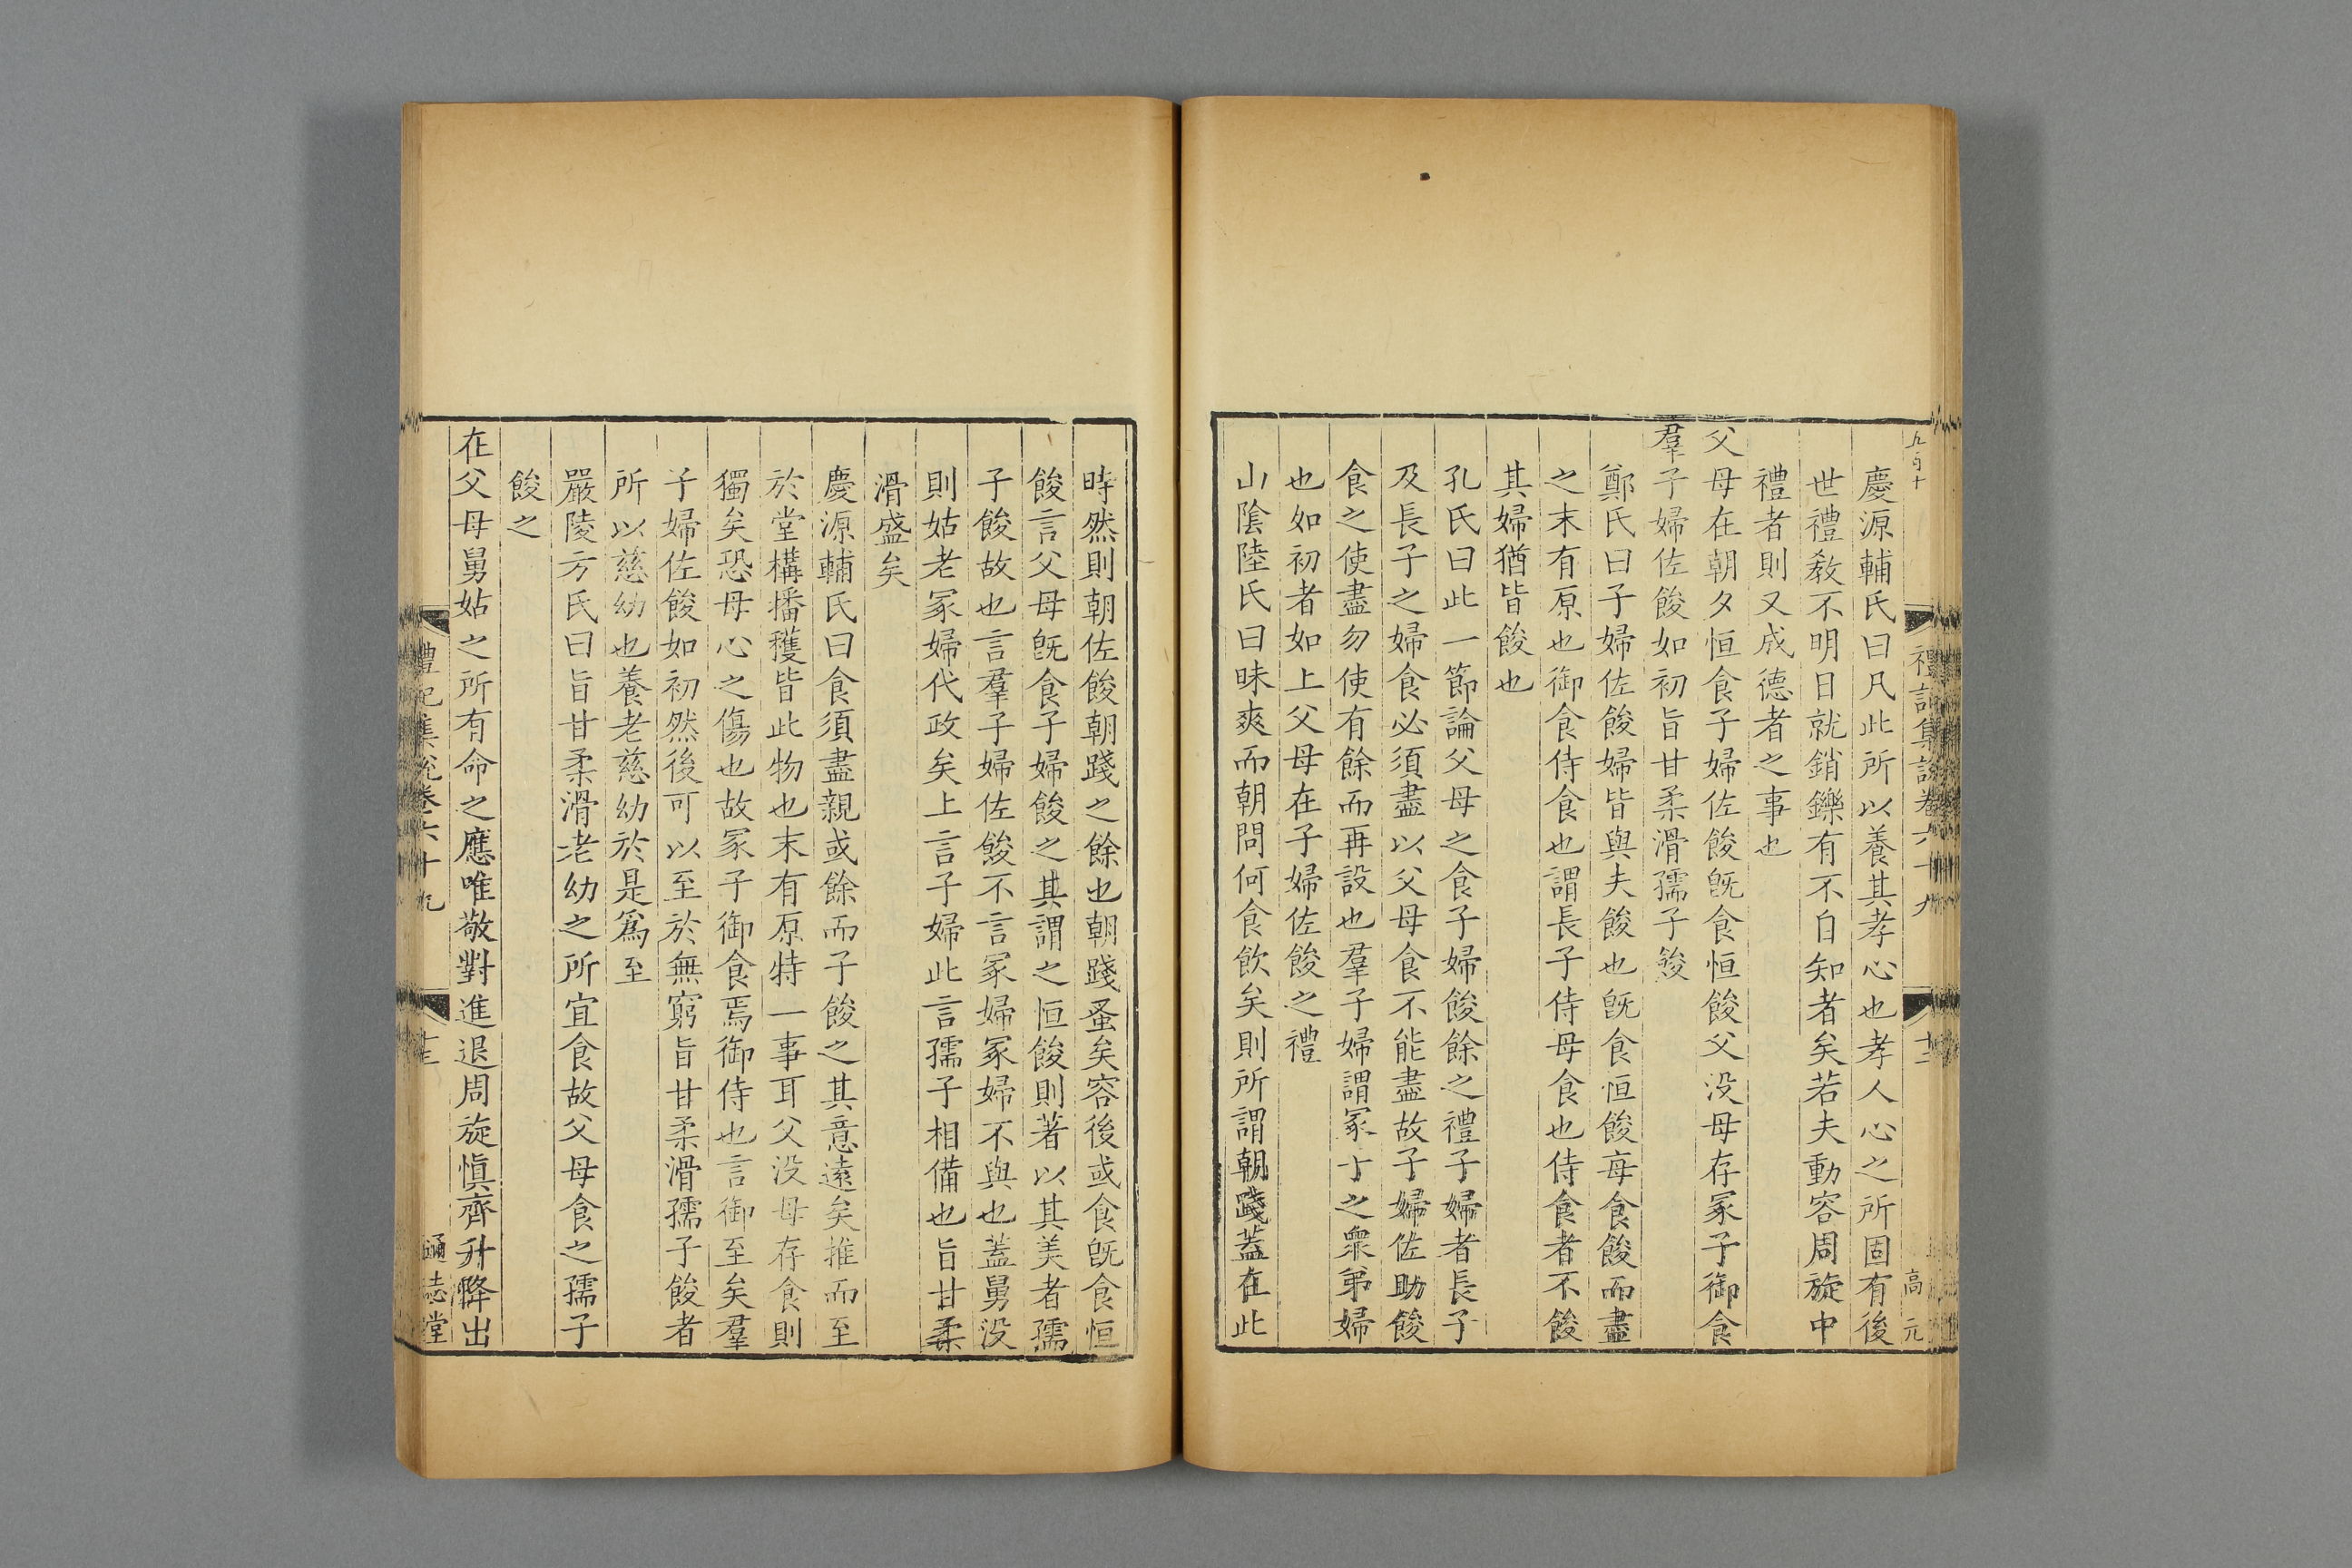 五百十
禮記集說卷六十九
十二
高元
慶源輔氏曰凡此所以養其孝心也孝人心之所固有後
世禮教不明日就銷鑠有不自知者矣若夫動容周旋中
禮者則又成德者之事也
父母在朝夕恒食子婦佐餕旣食恒餕父沒母存冢子御食
羣子婦佐餕如初旨甘柔滑孺子餕
鄭氏曰子婦佐餕婦皆與夫餕也旣食恒餕每食餕而盡
之末有原也御食侍食也謂長子侍母食也侍食者不餕
其婦猶皆餕也
孔氏曰此一節論父母之食子婦餕餘之禮子婦者長子
及長子之婦食必須盡以父母食不能盡故子婦佐助餕
食之使盡勿使有餘而再設也羣子婦謂冢子之衆弟婦
也如初者如上父母在子婦佐餕之禮
山陰陸氏曰昧爽而朝問何食飲矣則所謂朝踐蓋在此
時然則朝佐餕朝踐之餘也朝踐蚤矣容後或食旣食恒
餕言父母旣食子婦餕之其謂之恒餕則著以其美者孺
子餕故也言羣子婦佐餕不言冢婦冢婦不與也蓋舅沒
則姑老冢婦代政矣上言子婦此言孺子相備也旨甘柔
滑盛矣
慶源輔氏曰食須盡親或餘而子餕之其意遠矣推而至
於堂構播穫皆此物也末有原特一事耳父沒母存食則
獨矣恐母心之傷也故冢子御食焉御侍也言御至矣羣
子婦佐餕如初然後可以至於無窮旨甘柔滑孺子餕者
所以慈幼也養老慈幼於是爲至
嚴陵方氏曰旨甘柔滑老幼之所宜食故父母食之孺子
餕之
在父母舅姑之所有命之應唯敬對進退周旋愼齊升降出
禮記集說卷六十九
十三
通志堂